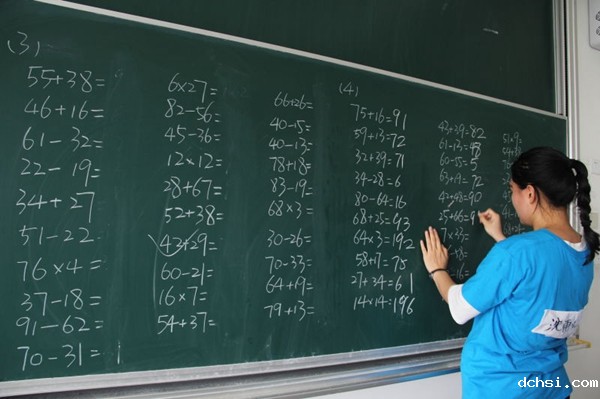 (3)
55+38=
46+16=
61-32=
22-19=
34+27
51-22
76×4=
37-18=
91-62=
70-31=1
6×27=
82-56=
45-36=
12×12=
28+67=
52+38=
43+29=
60-21=
16×7=
54+37=
66+26=
40-15=
40-13=
78+18=
83-19=
68×3=
30-26=
70-33=
64+19=
79+13=
(4)
75+16=91
59+13=72
32+39=71
34-28=6
80-64=16
68+25=93
64×3=192
58+17=75
27+34=61
14×14=196
43+39=82
61-13=48
60-55=5
63+19=72
42+48=90
25+66=9
dchsi.com